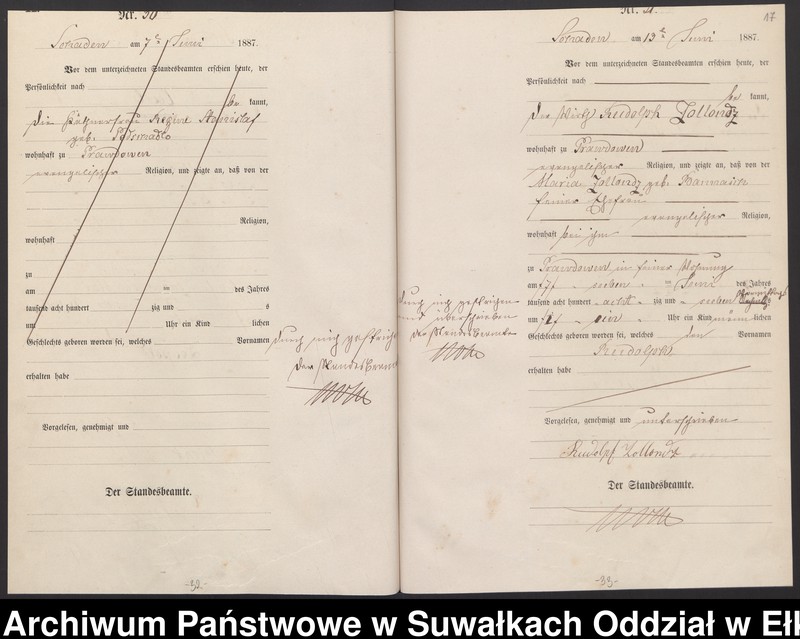 Nr. 30
am 7ten Juni 1887.
Vor dem unterzeichneten Standesbeamten erschien heute, der
Persönlichkeit nach
be kannt,
die Regine
geb.
wohnhaft zu Prawdowen
evangelischer Religion, und zeigte an, daß von der
Religion,
wohnhaft
zu
am ten des Jahres
tausend acht hundert zig und s
um Uhr ein Kind lichen
Geschlechts geboren worden sei, welches Vornamen
erhalten habe
Vorgelesen, genehmigt und
Der Standesbeamte.
durch mich gestrichen
Der Standesbeamte
-32-
17
Nr. 31.
am 13ten Juni 1887.
Vor dem unterzeichneten Standesbeamten erschien heute, der
Persönlichkeit nach
be kannt,
der Wirth Rudolph Zallondz
wohnhaft zu Prawdowen
evangelischer Religion, und zeigte an, daß von der
Maria Zallondz geb.
seiner Ehefrau
evangelischer Religion,
wohnhaft bei ihm
zu Prawdowen in seiner Wohnung
am sieben ten Juni des Jahres
tausend acht hundert acht zig und sieben
um Uhr ein Kind männ lichen
Geschlechts geboren worden sei, welches den Vornamen
Rudolph
erhalten habe
durch mich gestrichen
und überschrieben
der Standesbeamte
Vorgelesen, genehmigt und unterschrieben
Rudolf Zallondz
Der Standesbeamte.
-33-
Archiwum Państwowe w Suwałkach Oddział w Eł